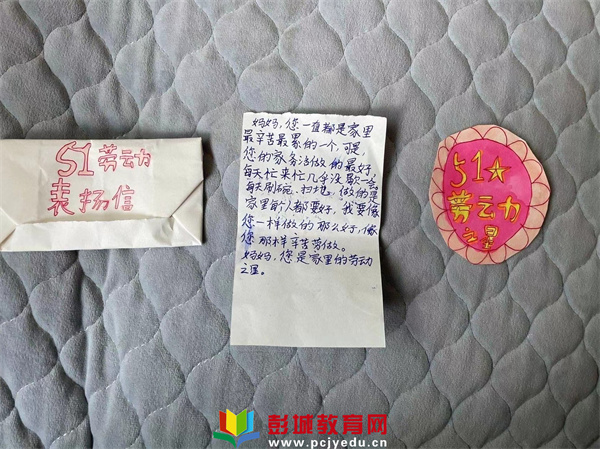 51劳动
表扬信
妈妈,您一直都是家里
最辛苦最累的一个,可是
您的家务活做的最好,
每天忙来忙几乎没歇一会
每天刷碗、扫地、做的是
家里每个人都要好,我要像
您一样做的那么好,像
您那样辛苦劳做。
妈妈,您是家里的劳动
之星。
51★
劳动力
之星
彭城教育网
www.pcjyedu.cn